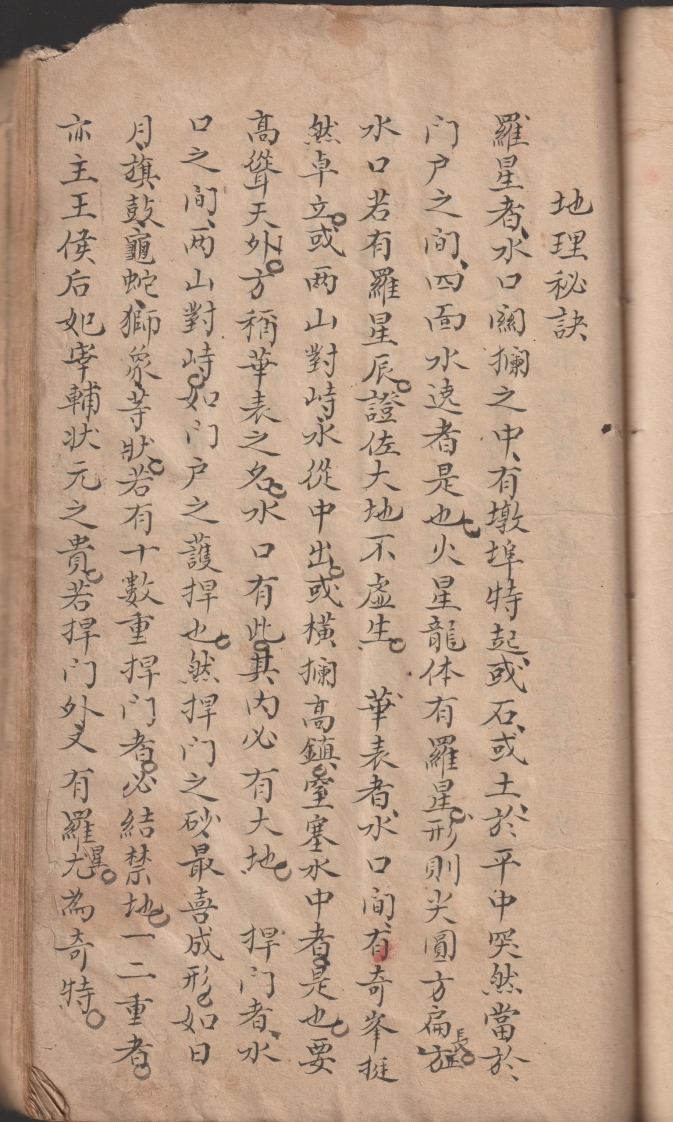 地理秘訣
羅星者、水口關攔之中、有墩埠特起或石、或土、於平中突然當於、
门户之间、四面水遶者是也。火星龍体有羅星。形則尖圓方扁長。
水口若有羅星辰。證佐大地不虛生。 華表者、水口间、有奇峯挺
然卓立。或两山對峙、水從中出。或橫攔高鎮、窒塞水中者。是也。要
高聳天外。方稱華表之名。水口有此。其内必有大地。 捍门者、水
口之间、两山對峙。如门户之護捍也。然捍门之砂、最喜成形。如日
月、旗鼓、龜蛇、獅象、等狀。若有十數重捍门者。必結禁地。一二重者。
亦主王侯后妃宰輔状元之貴。若捍门外又有羅星。尤為奇特。